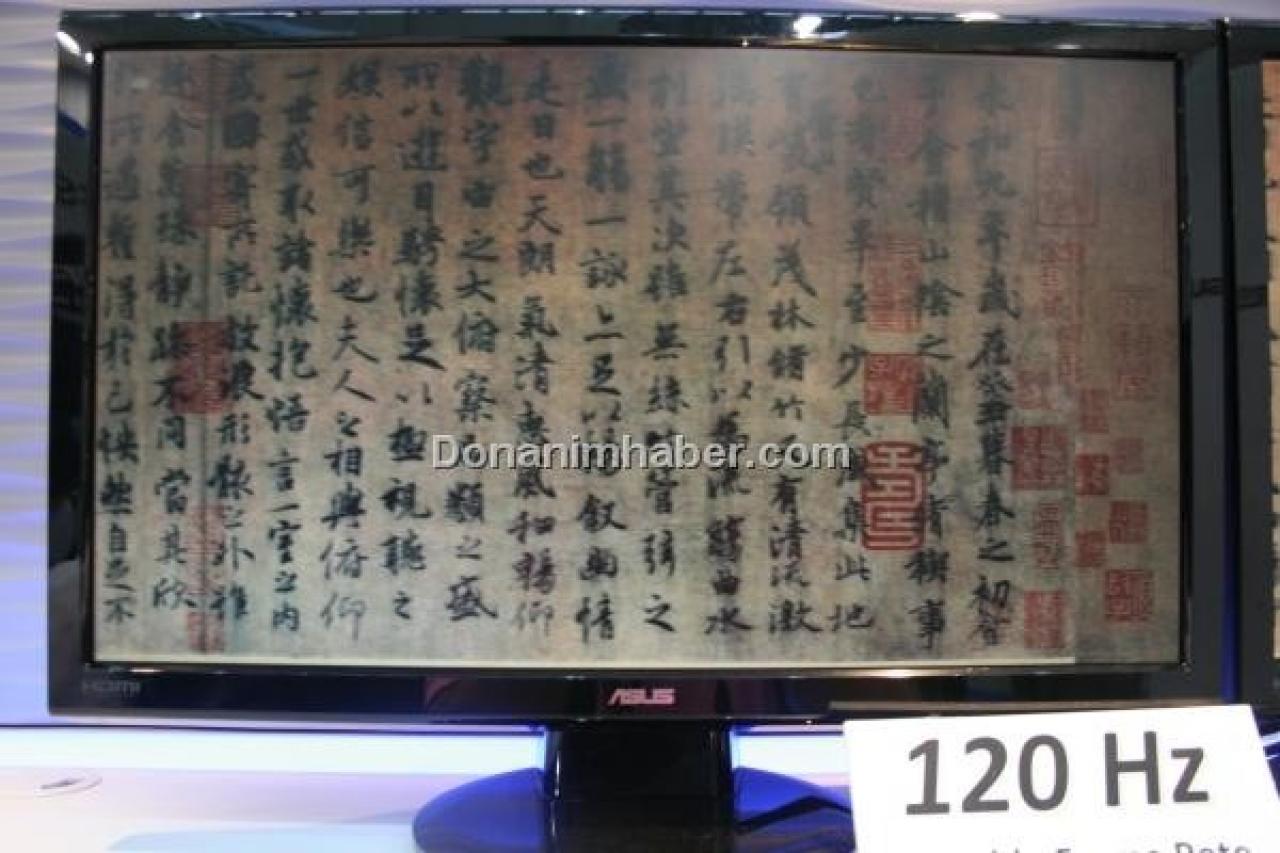 永和九年歲在癸丑暮春之初會
于會稽山陰之蘭亭脩稧事
也羣賢畢至少長咸集此地
有崇山峻領茂林脩竹又有清流激
湍暎帶左右引以為流觴曲水
列坐其次雖無絲竹管弦之
盛一觴一詠亦足以暢敘幽情
是日也天朗氣清惠風和暢仰
觀宇宙之大俯察品類之盛
所以遊目騁懷足以極視聽之
娛信可樂也夫人之相與俯仰
一世或取諸懷抱悟言一室之內
或因寄所託放浪形骸之外雖
趣舍萬殊靜躁不同當其欣
於所遇暫得於己怏然自足不
Donanimhaber.com
HDMI
ASUS
120 Hz
Rate